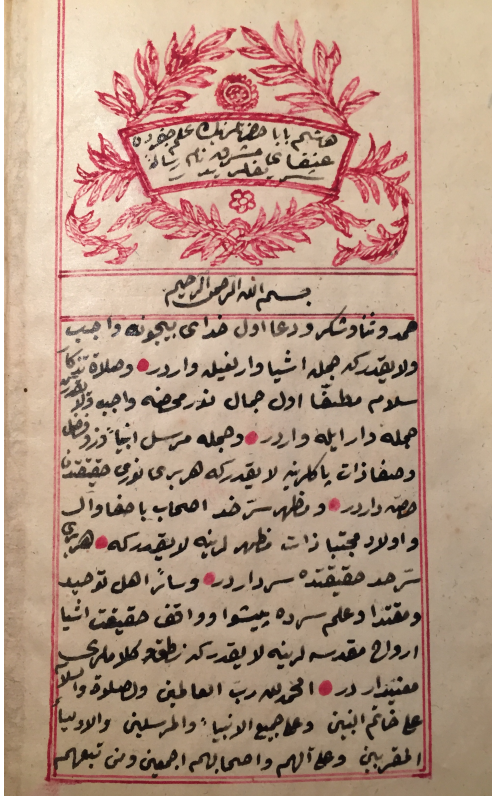 هاشم بابا حضرتلرينك علم جفردن
عنقاى مشرق نام رساله
شريفلريدر
بسم الله الرحمن الرحيم
حمد وثنا وشكر ودعا اول خداى بيچونه واجب
ولايقدر كه جمله اشيا وارلغيله واردر • وصلاة
سلام مطلقا اول جمال نور محضه واجب ولايقدر
جمله وار ايله واردر • وجمله مرسل انبيا
وصفا ذات پاكلرينه لايقدر كه هر برى نورى حقيقتدن
حصه داردر • ومظهر سر خدا اصحاب باصفا وآل
واولاد مجتبا ذات مظهرلرينه لايقدر كه • هر برى
سر حد حقيقتده سرداردر • وسائر اهل توحيد
ومقتدا وعلم سرده پيشوا وواقف حقيقت اشيا
ارواح مقدسه لرينه لايقدر كه نطق وكلاملرى
معنيدار در • الحمد لله رب العالمين والصلوة والسلام
على خاتم النبيين وعلى جميع الانبياء والمرسلين والاوليا
المقربين وعلى آلهم واصحابهم اجمعين ومن تبعهم